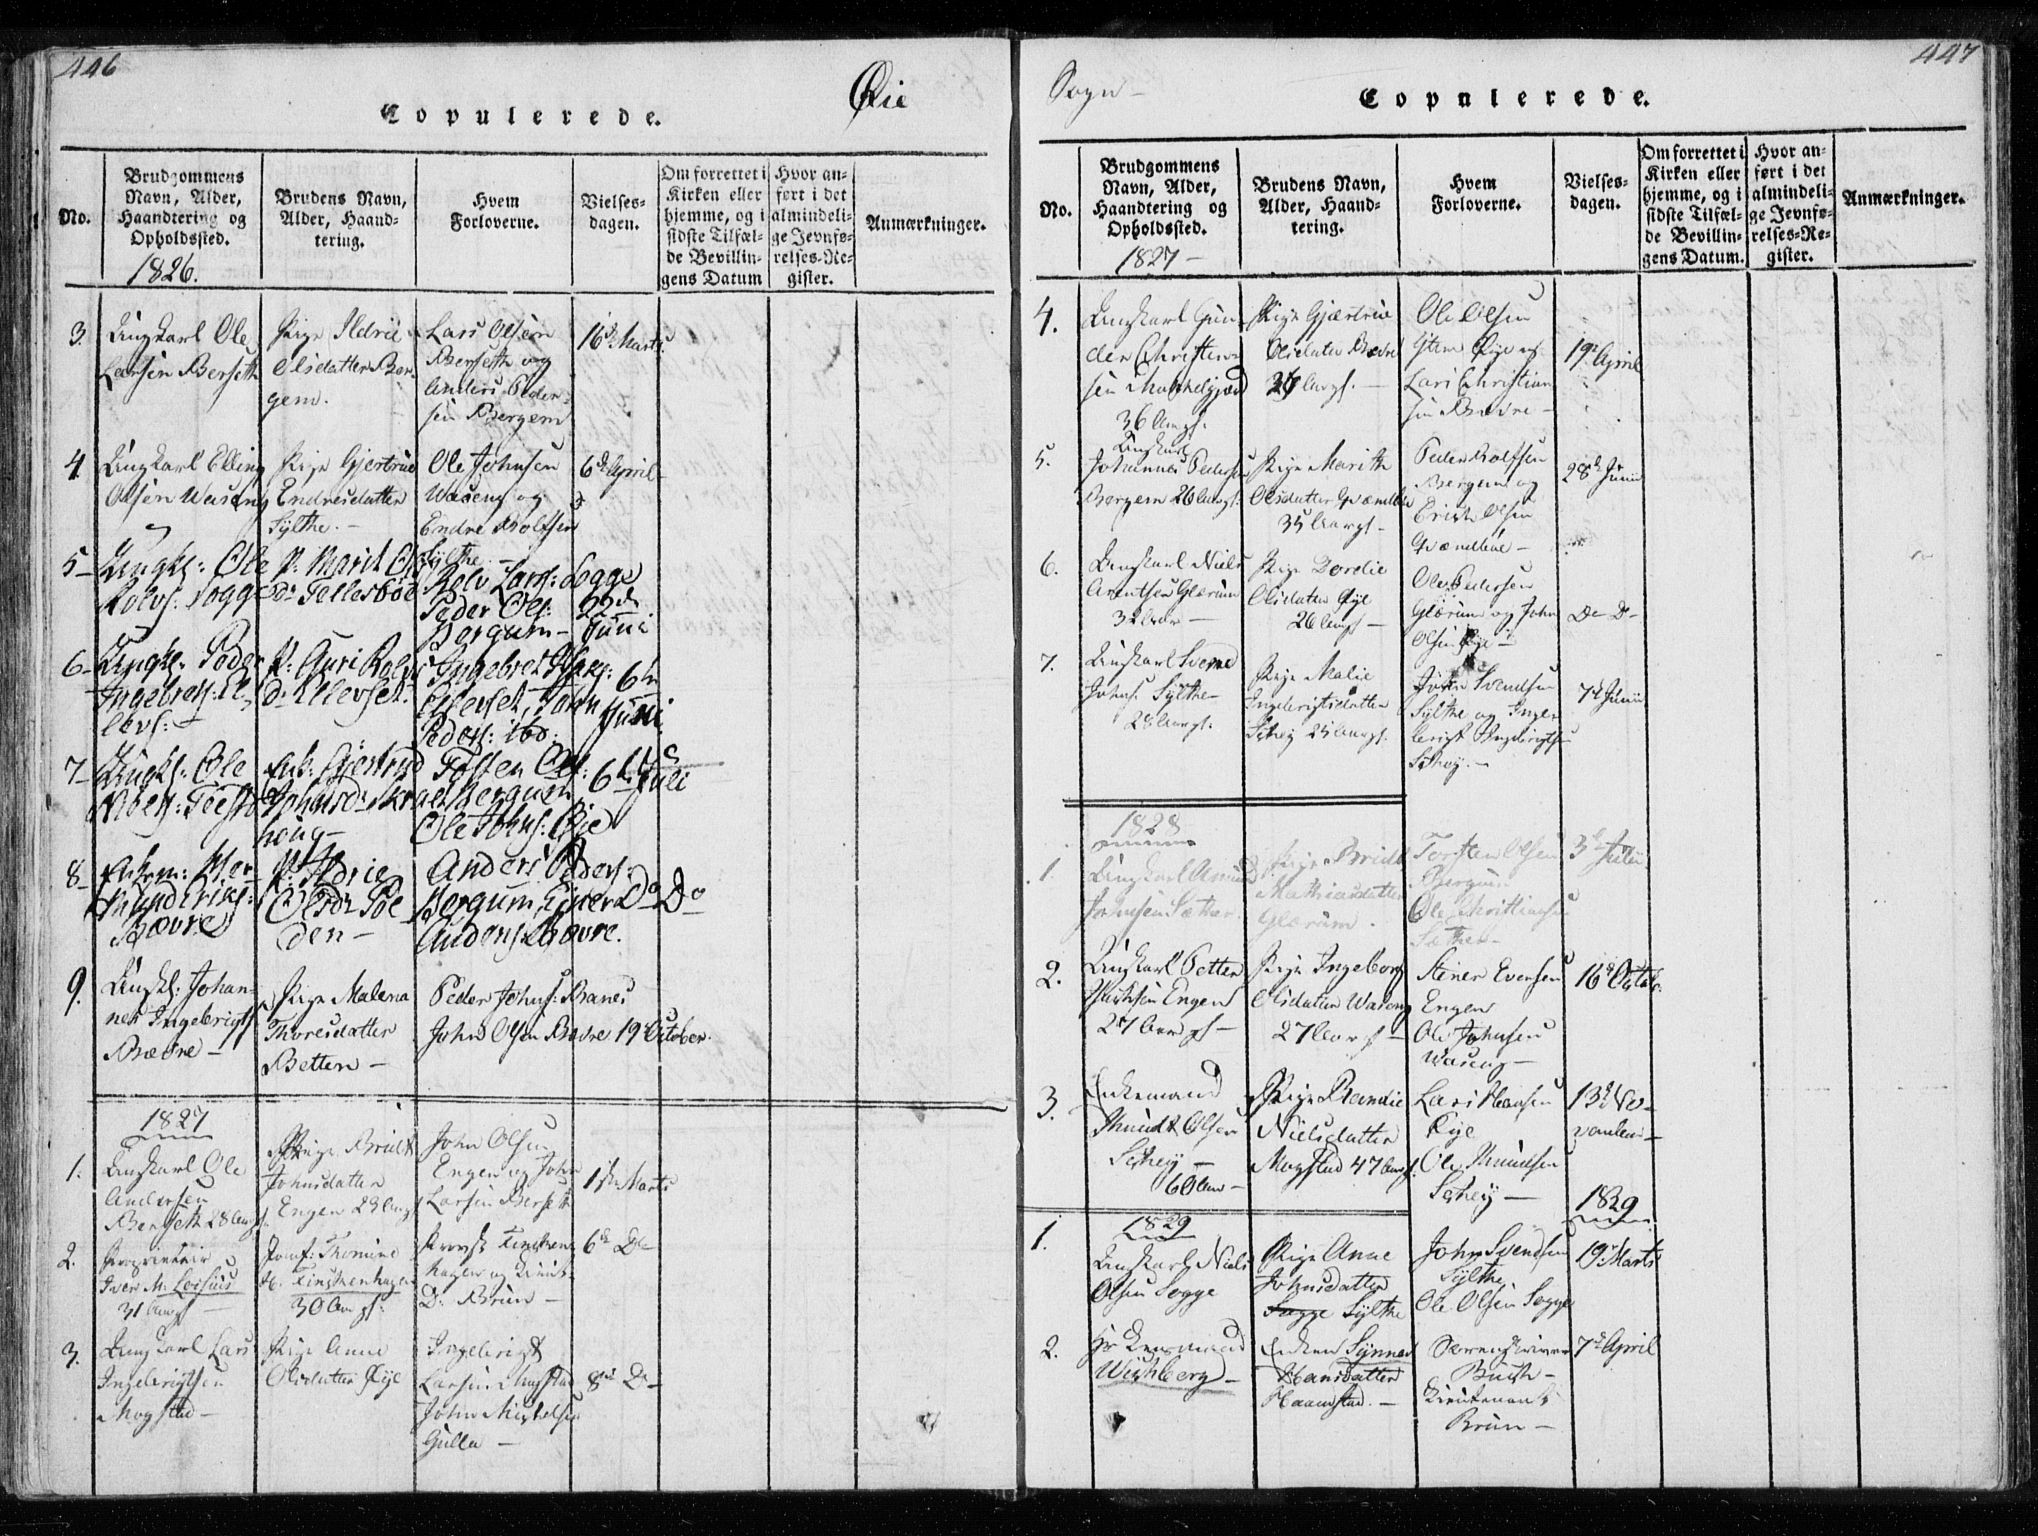 446
Øie
Copulerede.
No.
Brudgommens
Navn, Alder,
Haandtering og
Opholdssted.
1826.
Brudens Navn,
Alder, Haand-
tering.
Hvem
Forloverne.
Vielses-
dagen.
Om forrettet i
Kirken eller
hjemme, og i
sidste Tilfæl-
de Bevillin-
gens Datum
Hvor an-
ført i det
almindeli-
ge Jevnfø-
relses-Re-
gister.
Anmærkninger.
3.
Ungkarl Ole
Larsen Berseth
Pige Ildrie
Olsdatter Ber-
gem.
Lars Olsen
Berseth og
Anders Peder-
sen Bergem
16de Marts.
4
Ungkarl Elling
Olsen Waseng
Pige Gjertrue
Endresdatter
Sylthe.-
Ole Johnsen
Waseng og
Endre Rolfsen
Sylthe -
6de April
5-
Ungkl: Ole
Rolvs: Sogge
P: Marit Ols
Dr Tellesbøe
Rolv Lars: Sogge
Peder Ols:
Bergum-
22de
Juni
6-
Ungkl: Peder
Ingebrets: El-
levs:
P: Guri Rolvs
Dr Ellevset.
Ingebret
Ellevset, John
Peders: ibd:
6te
Juni
7-
Ungkl: Ole
Enk: Gjertrud
Johnsdr
houg-
Tosten Ols:
Bergum
Ole Johns: Øie
6te Juli
8-
Enkem:
mund Eriks:
Bævre
P: Ildrie
Olsdr Søe
den-
Anders Peders:
Bergum, Ejner
Anders: Bævre.
Do Do
9.
Ungkl: Johan-
nes Ingebrigts
Bævre -
Pige Malena
Thoresdatter
Betten -
Peder Johns: Banes
John Olsen Bævre
19de October.
1827
1.
Ungkarl Ole
Andersen
Berseth 28 Aargl.
Pige Bridt
Johnsdatter
Engen 23 Aargl
John Olsen
Engen og John
Larsen Berseth
1ste Marts
2.
Proprietair
Iver M. Leisius
31 Aargl -
Jomf: Thomine
H. Finckenhagen
30 Aargl:
Provst Fincken-
hagen og Lieut-
D: Brun -
6te Do
3.
Ungkarl Lars
Ingebrigtsen
Mogstad -
Pige Anne
Olsdatter Øye
Ingebrigt
Larsen Mogstad
John Michelsen
Gulla -
8de Do
447
Sogn -
Copulerede.
No.
Brudgommens
Navn, Alder,
Haandtering og
Opholdssted.
1827 -
Brudens Navn,
Alder, Haand-
tering.
Hvem
Forloverne.
Vielses-
dagen.
Om forrettet i
Kirken eller
hjemme, og i
sidste Tilfæl-
de Bevillin-
gens Datum.
Hvor an-
ført i det
almindeli-
ge Jevnfø-
relses-Re-
gister.
Anmærkninger.
4.
Ungkarl Gun-
der Christen-
sen
36 Aargl.
Pige Gjertrue
Olsdatter Bævre
Aargl. -
Ole Olsen
Øye og
Lars Christian
sen Bævre -
19de April
5.
Ungkarl
Johannes Pedersen
Bergem 26 Aargl.
Pige Marith
Olsdatter Qvændbøe
35 Aargl -
Peder Rolfsen
Bergem og
Erich Olsen
Qvændbøe -
28de Junii
6.
Ungkarl Niels
Arentsen Glærum
32 Aar -
Pige Dordie
Olsdatter Øye
26 Aargl -
Ole Pedersen
Glærum og John
Olsen Øye -
Do Do
7.
Ungkarl Svend
Johns: Sylthe
28 Aargl.
Pige Malie
Ingebrigtsdatter
Schey 25 Aargl.
John Svendsen
Sylthe og Inge-
brigt Ingebrigtsen
Schey. -
7de Junii
1828
1.
Ungkarl Amund
Johnsen Sæther
Pige Bridt
Mathiasdatter
Glærum.
Torsten Olsen
Bergum
Ole Christiansen
Sæther -
3de Julii
2.
Ungkarl Petter
Engen
27 Aargl -
Pige Ingeborg
Olsdatter Waseng
27 Aargl -
Stener Evensen
Engen
Ole Johnsen
Waseng -
16de Octob:
3.
Enkemand
Knudt Olsen
Schey -
60 Aar -
Pige Randie
Nielsdatter
Mogstad 47 Aargl.
Lars Hansen
Øye
Ole Knudsen
Schey -
13de No-
vember -
1829
1829
1.
Ungkarl Niels
Olsen Sogge
Pige Anne
Johnsdatter
Sogge Sylthe
John Svendsen
Sylthe
Ole Olsen Sogge
19de Marts
2.
Hr Lensmand
Wichberg -
Enken Synnev
Hansdatter
Haanstad. -
Sorenskriver
Buch -
Lieutenant
Brun -
7de April